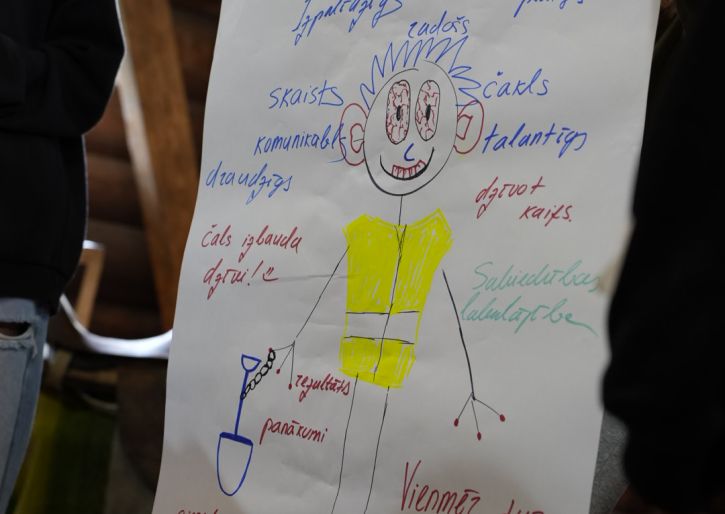 Izpalīdzīgs
radošs
skaists
čakls
komunikabls
talantīgs
draudzīgs
dzīvot
kaifs.
čals izbauda
dzīvi!
Sabiedrības
labklājība
rezultāts
panākumi
Vienmēr